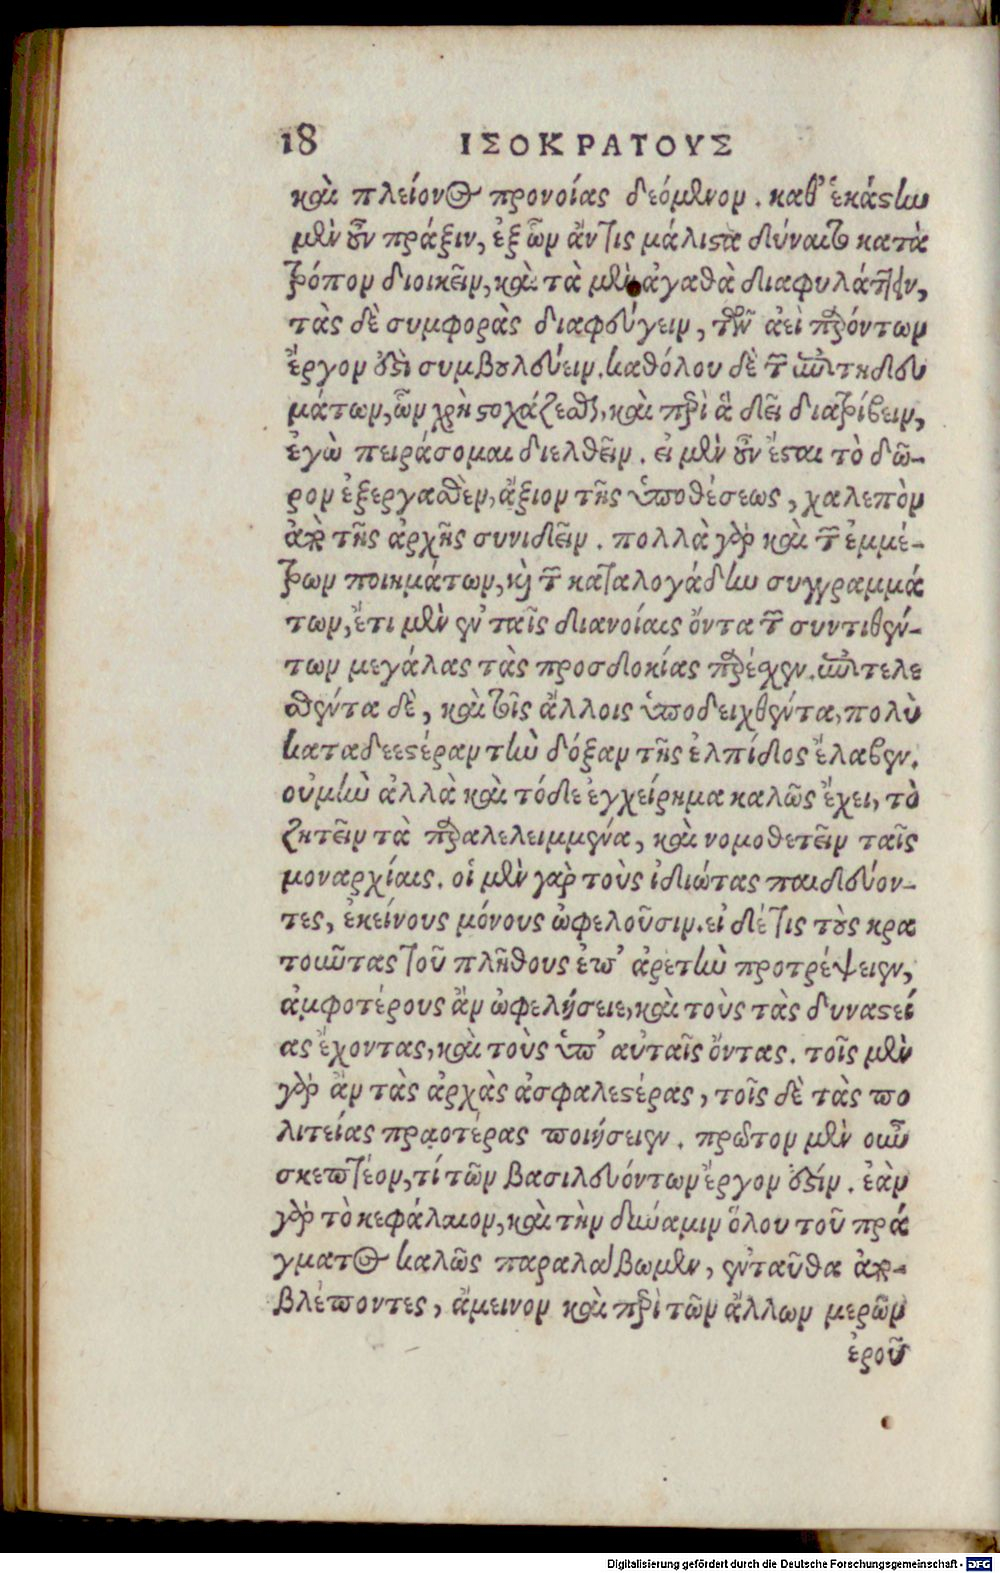 18 ΙΣΟΚΡΑΤΟΥΣ
καὶ πλείονος προνοίας δεόμενον. καθ' ἑκάστην
μὲν οὖν πρᾶξιν, ἐξ ὧν ἄν τις μάλιστα δύναιτο κατὰ
τρόπον διοικεῖν, καὶ τὰ μὲν ἀγαθὰ διαφυλάττειν,
τὰς δὲ συμφορὰς διαφεύγειν, τῶν ἀεὶ παρόντων
ἔργον ἐστὶ συμβουλεύειν. καθόλου δὲ τῶν ἐπιτηδευ
μάτων, ὧν χρὴ στοχάζεσθαι, καὶ περὶ ἃ δεῖ διατρίβειν,
ἐγὼ πειράσομαι διελθεῖν. εἰ μὲν οὖν ἔσται τὸ δῶ-
ρον ἐξεργασθὲν, ἄξιον τῆς ὑποθέσεως, χαλεπὸν
ἀπὸ τῆς ἀρχῆς συνιδεῖν. πολλὰ γὰρ καὶ τῶν ἐμμέ-
τρων ποιημάτων, καὶ τῶν καταλογάδην συγγραμμά
των, ἔτι μὲν ἐν ταῖς διανοίαις ὄντα τῶν συντιθέν-
των μεγάλας τὰς προσδοκίας παρέχεν. ἐπιτελε
σθέντα δὲ, καὶ τοῖς ἄλλοις ὑποδειχθέντα, πολὺ
καταδεεστέραν τὴν δόξαν τῆς ἐλπίδος ἔλαβεν.
οὐμὴν ἀλλὰ καὶ τόδε ἐγχείρημα καλῶς ἔχει, τὸ
ζητεῖν τὰ παραλελειμμένα, καὶ νομοθετεῖν ταῖς
μοναρχίαις. οἱ μὲν γὰρ τοὺς ἰδιώτας παιδεύον-
τες, ἐκείνους μόνους ὠφελοῦσιν. εἰ δέ τις τοὺς κρα
τοιῦτας τοῦ πλήθους ἐπ' ἀρετὴν προτρέψειεν,
ἀμφοτέρους ἂν ὠφελήσειε, καὶ τοὺς τὰς δυναστεί
ας ἔχοντας, καὶ τοὺς ὑπ' αὐταῖς ὄντας. τοῖς μὲν
γὰρ ἂν τὰς ἀρχὰς ἀσφαλεστέρας, τοῖς δὲ τὰς πο
λιτείας πραοτέρας ποιήσειεν. πρῶτον μὲν οὖν
σκεπτέον, τί τῶν βασιλευόντων ἔργον ἐστίν. ἐὰν
γὰρ τὸ κεφάλαιον, καὶ τὴν δύναμιν ὅλου τοῦ πρά
γματος καλῶς παραλάβωμεν, ἐνταῦθα ἀπο-
βλέποντες, ἄμεινον καὶ περὶ τῶν ἄλλων μερῶν
ἐροῦ
Digitalisierung gefördert durch die Deutsche Forschungsgemeinschaft - DFG